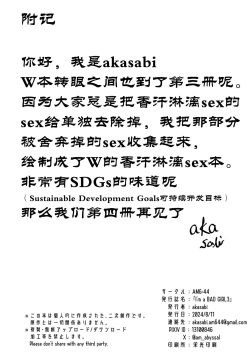 附记
你好，我是akasabi
W本转眼之间也到了第三册呢。
因为大家总是把香汗淋漓sex的
sex给单独去除掉，我把那部分
被舍弃掉的sex收集起来，
绘制成了W的香汗淋漓sex本。
非常有SDGs的味道呢
（Sustainable Development Goals可持续开发目标）
那么我们第四册再见了
aka
sabi
※この本は個人的に作成された、二次創作です。
原作とは一切関係ありません。
※複製・無断アップロード/ダウンロード
加工等を禁止します。
Please don't share with any third party.
サークル：AM6:44
発行誌名：『I'm a BAD GIRL3』
発行者：akasabi
発行日：2024/8/11
連絡先：akasabi.am644@gmail.com
PIXIV ID：13100846
X：@am_abyssal
印刷所：栄光印刷